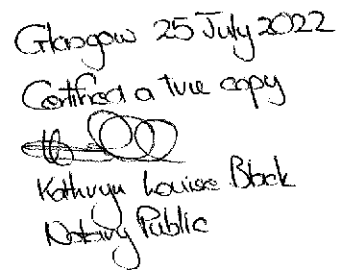 Glasgow 25 July 2022
Certified a true copy
Kathryn Louise Black
Notary Public